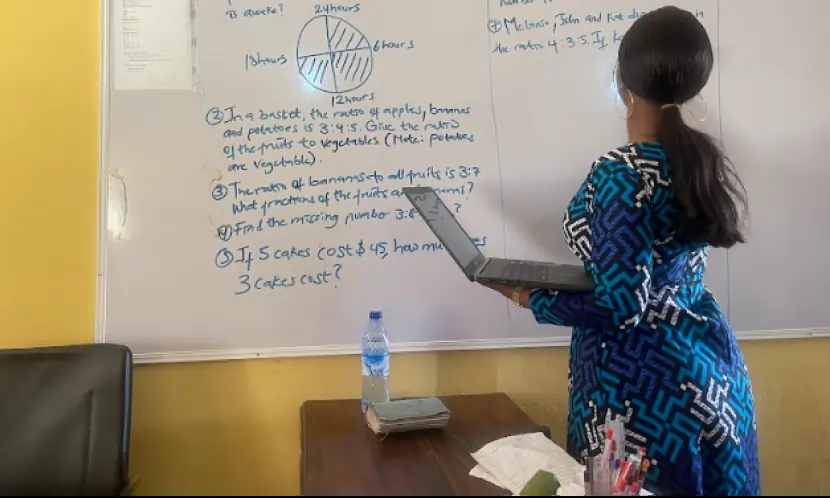 is awake?
24hours
18hours
6hours
12hours
② In a basket, the ratio of apples, bananas
and potatoes is 3:4:5. Give the ratio
of the fruits to vegetables (Note: potatoes
are vegetable).
③ The ratio of bananas to all fruits is 3:7
What fractions of the fruits are bananas?
④ Find the missing number 3:8 ?
⑤ If 5 cakes cost $45, how mu
3 cakes cost?
⑦ Melanie, John and Kat in
the ratio 4:3:5. If